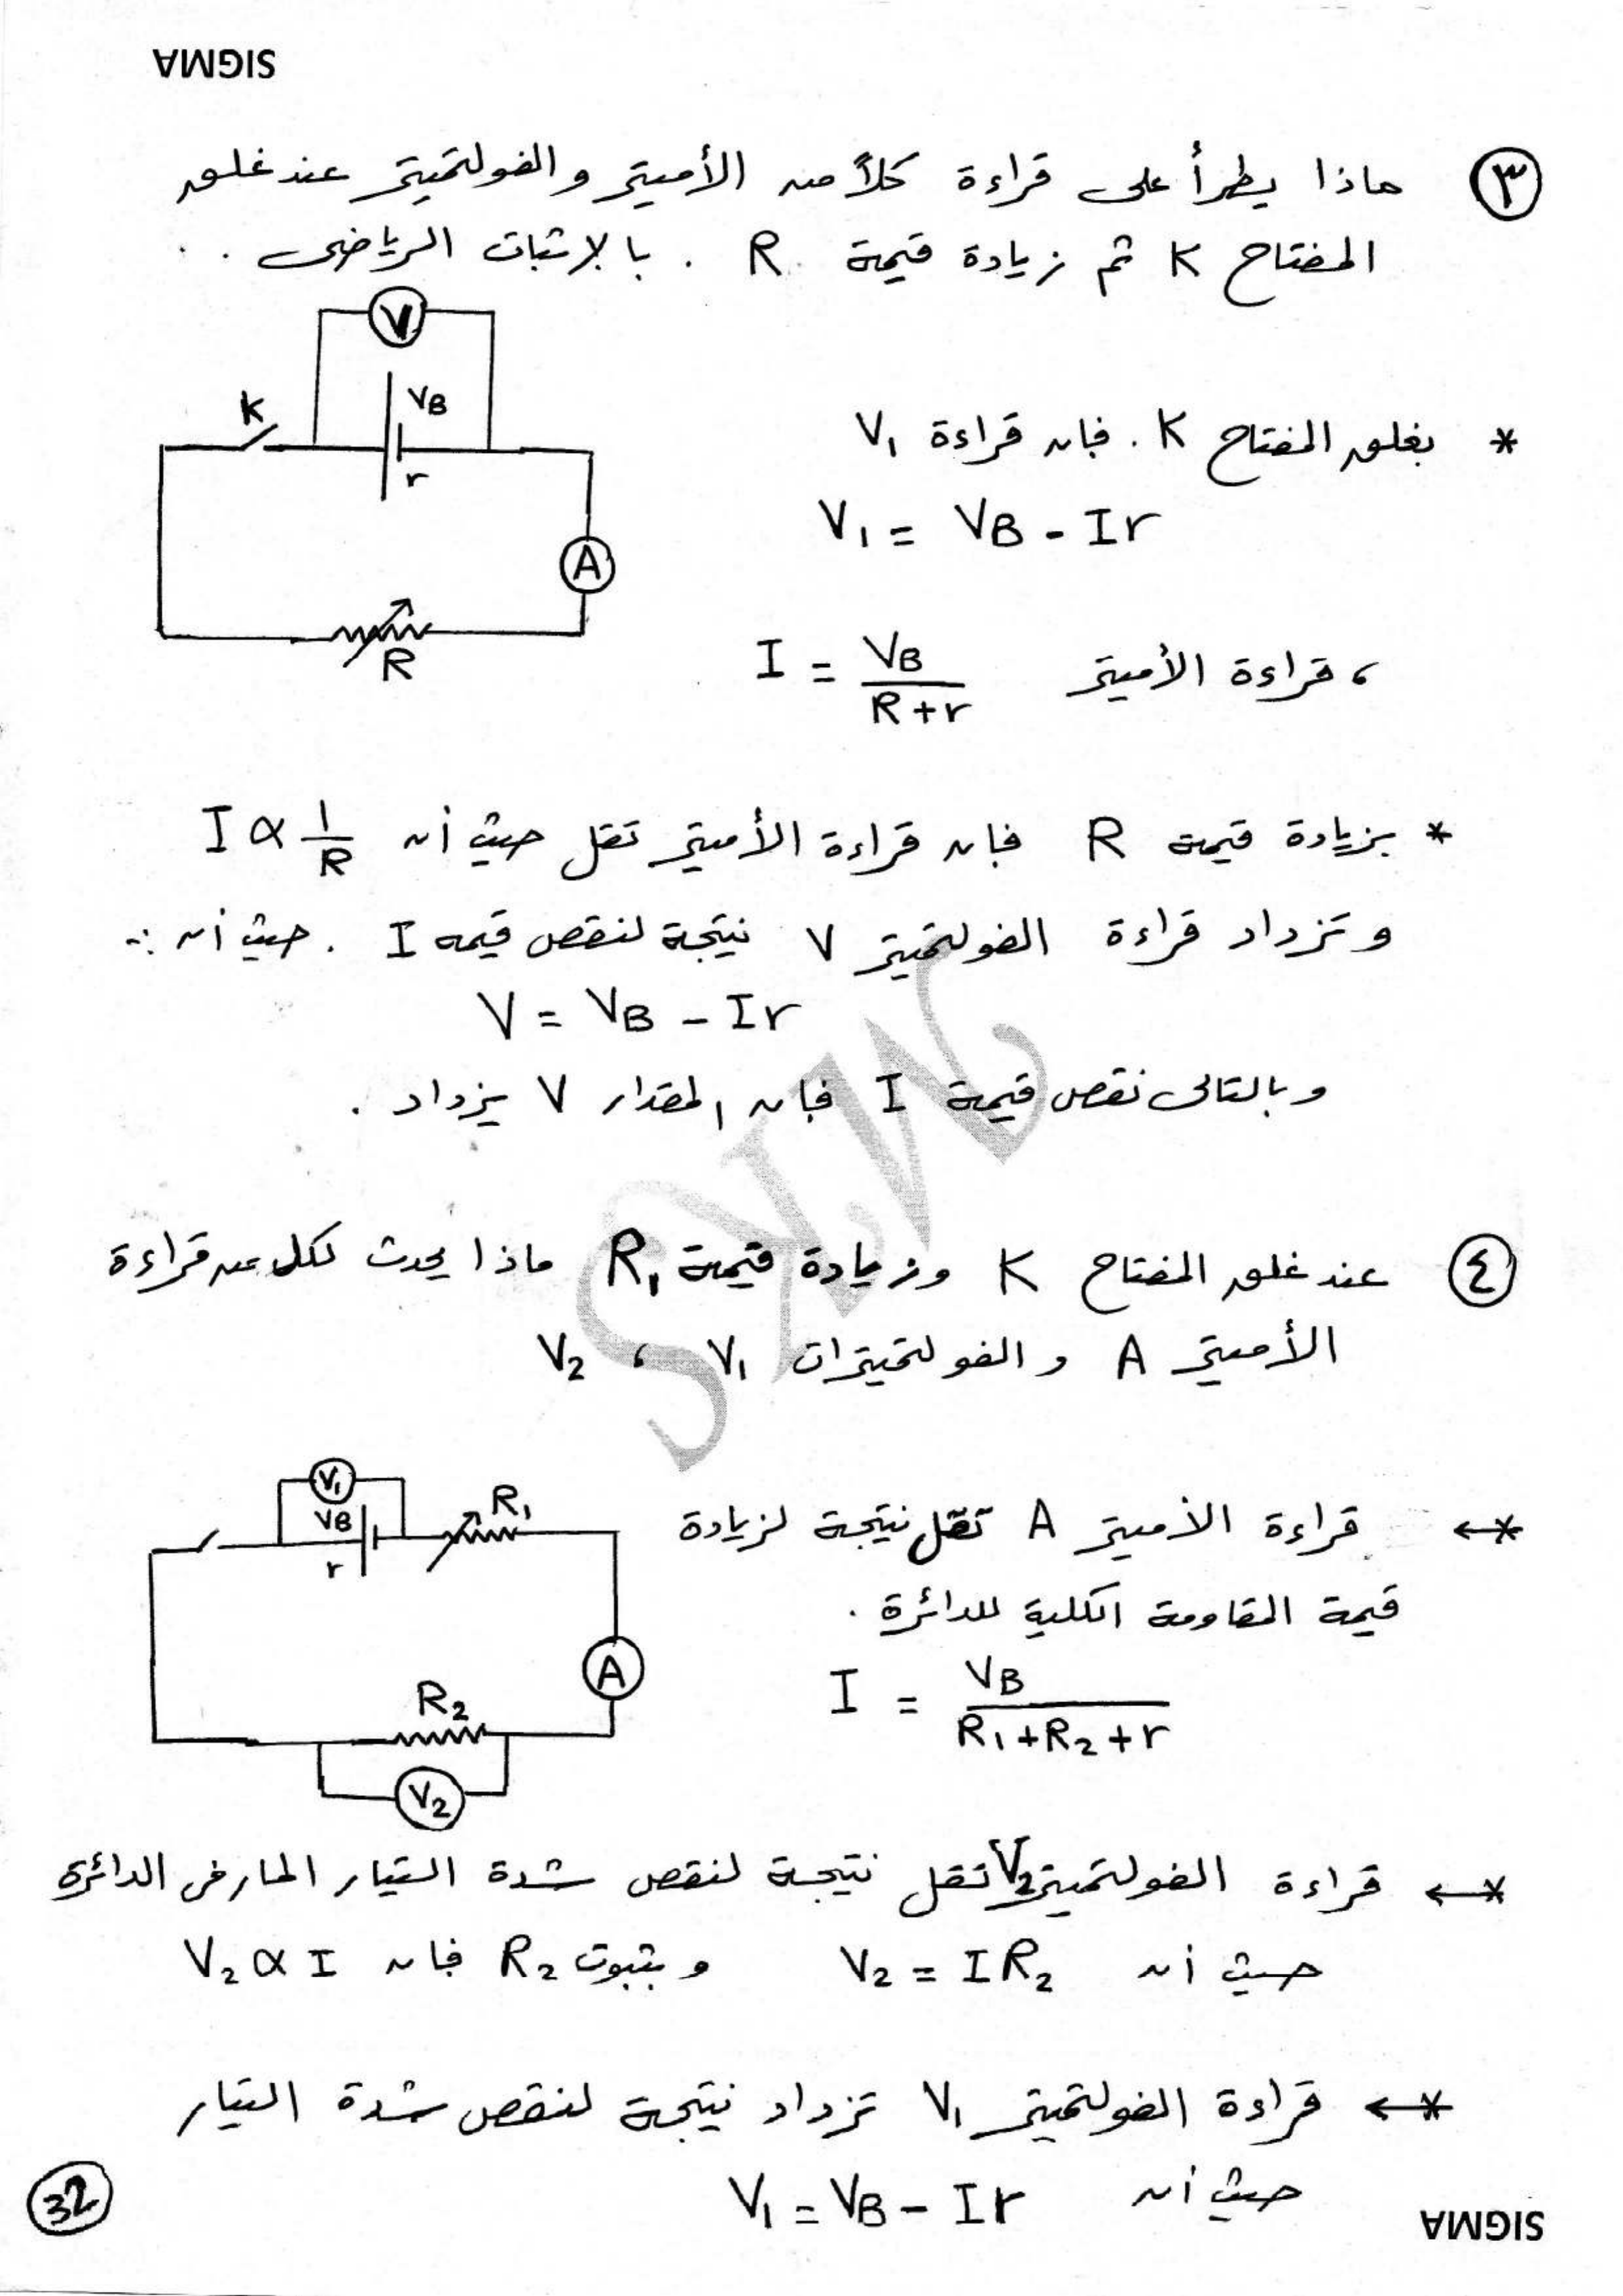 SIGMA
٣ ماذا يطرأ على قراءة كلاً من الأميتر والفولتميتر عند غلق
المفتاح K ثم زيادة قيمة R . بالإثبات الرياضى . .
V
K
VB
r
A
R
* بغلق المفتاح K . فإن قراءة V₁
V₁ = VB - Ir
، قراءة الأميتر I = VB / (R+r)
* بزيادة قيمة R فإن قراءة الأميتر تقل حيث أن I ∝ 1/R
وتزداد قراءة الفولتميتر V نتيجة لنقص قيمه I . حيث أن :-
V = VB - Ir
وبالتالى نقص قيمة I فإن المقدار V يزداد .
MKS
٤ عند غلق المفتاح K وزيادة قيمة R₁ ماذا يحدث لكل من قراءة
الأميتر A والفولتميترات V₁ ، V₂
V₁
VB
r
R₁
A
R₂
V₂
*← قراءة الأميتر A تقل نتيجة لزيادة
قيمة المقاومة الكلية للدائرة .
I = VB / (R₁+R₂+r)
*← قراءة الفولتميتر V₂ تقل نتيجة لنقص شدة التيار المار فى الدائرة
حيث أن V₂ = IR₂ وبثبوت R₂ فإن V₂ ∝ I
*← قراءة الفولتميتر V₁ تزداد نتيجة لنقص شدة التيار
حيث أن V₁ = VB - Ir
32
SIGMA